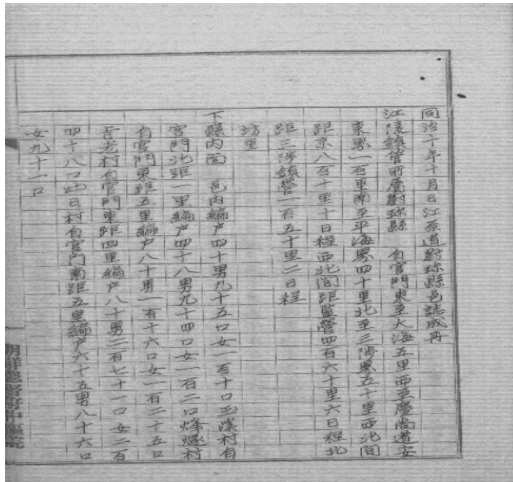 同治十年十月日江原道蔚珍縣邑誌成冊
江陵鎭管所屬蔚珍縣 自官門東至大海五里西至慶尙道安
東界一百里南至平海界四十里北至三陟界五十里西北間
距京八百十里十日程西北間距監營四百六十里六日程北
距三陟鎭營一百五十里二日程
坊里
下縣內面 邑內編戶四十男九十五口女一百十口玉溪村自
官門北距一里編戶四十八男九十四口女一百二口烽燧村
自官門東距五里編戶八十男一百十六口女一百二十五口
老村自官門東距四里編戶八十男二百七十一口女二百
四十八口 日村自官門南距五里編戶六十五男八十六口
女九十一口
朝鮮總督府中樞院